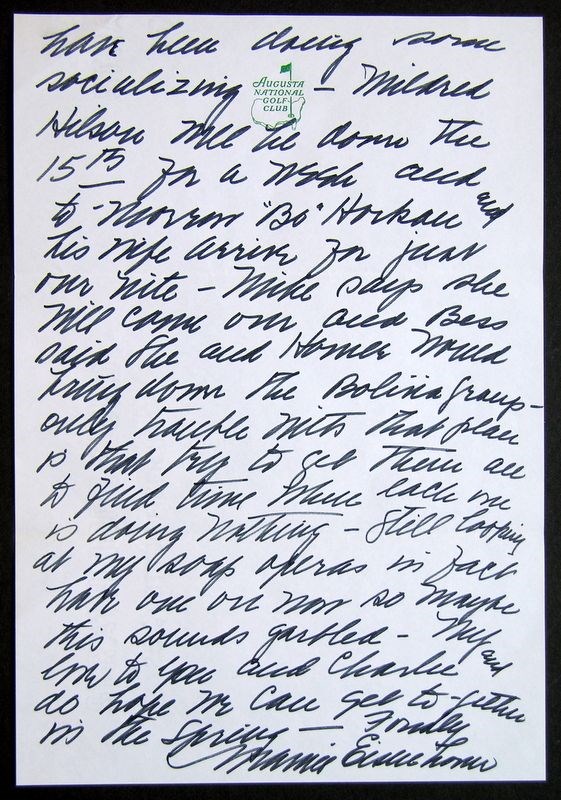 have been doing some
socializing — Mildred
AUGUSTA
NATIONAL
GOLF
CLUB
Hilson will be down the
15th for a week and
to-morrow "Bo" and
his wife arrive for just
one nite – Mike says she
will come over and Bess
said she and Homer would
bring down the group –
only trouble with that plan
is that try to get them all
to find time when each one
is doing nothing – Still looking
at my soap operas in fact
have one on now so maybe
this sounds garbled – My
love to you and Charlie and
do hope we can get to-gether
in the Spring — Fondly
Mamie Eisenhower